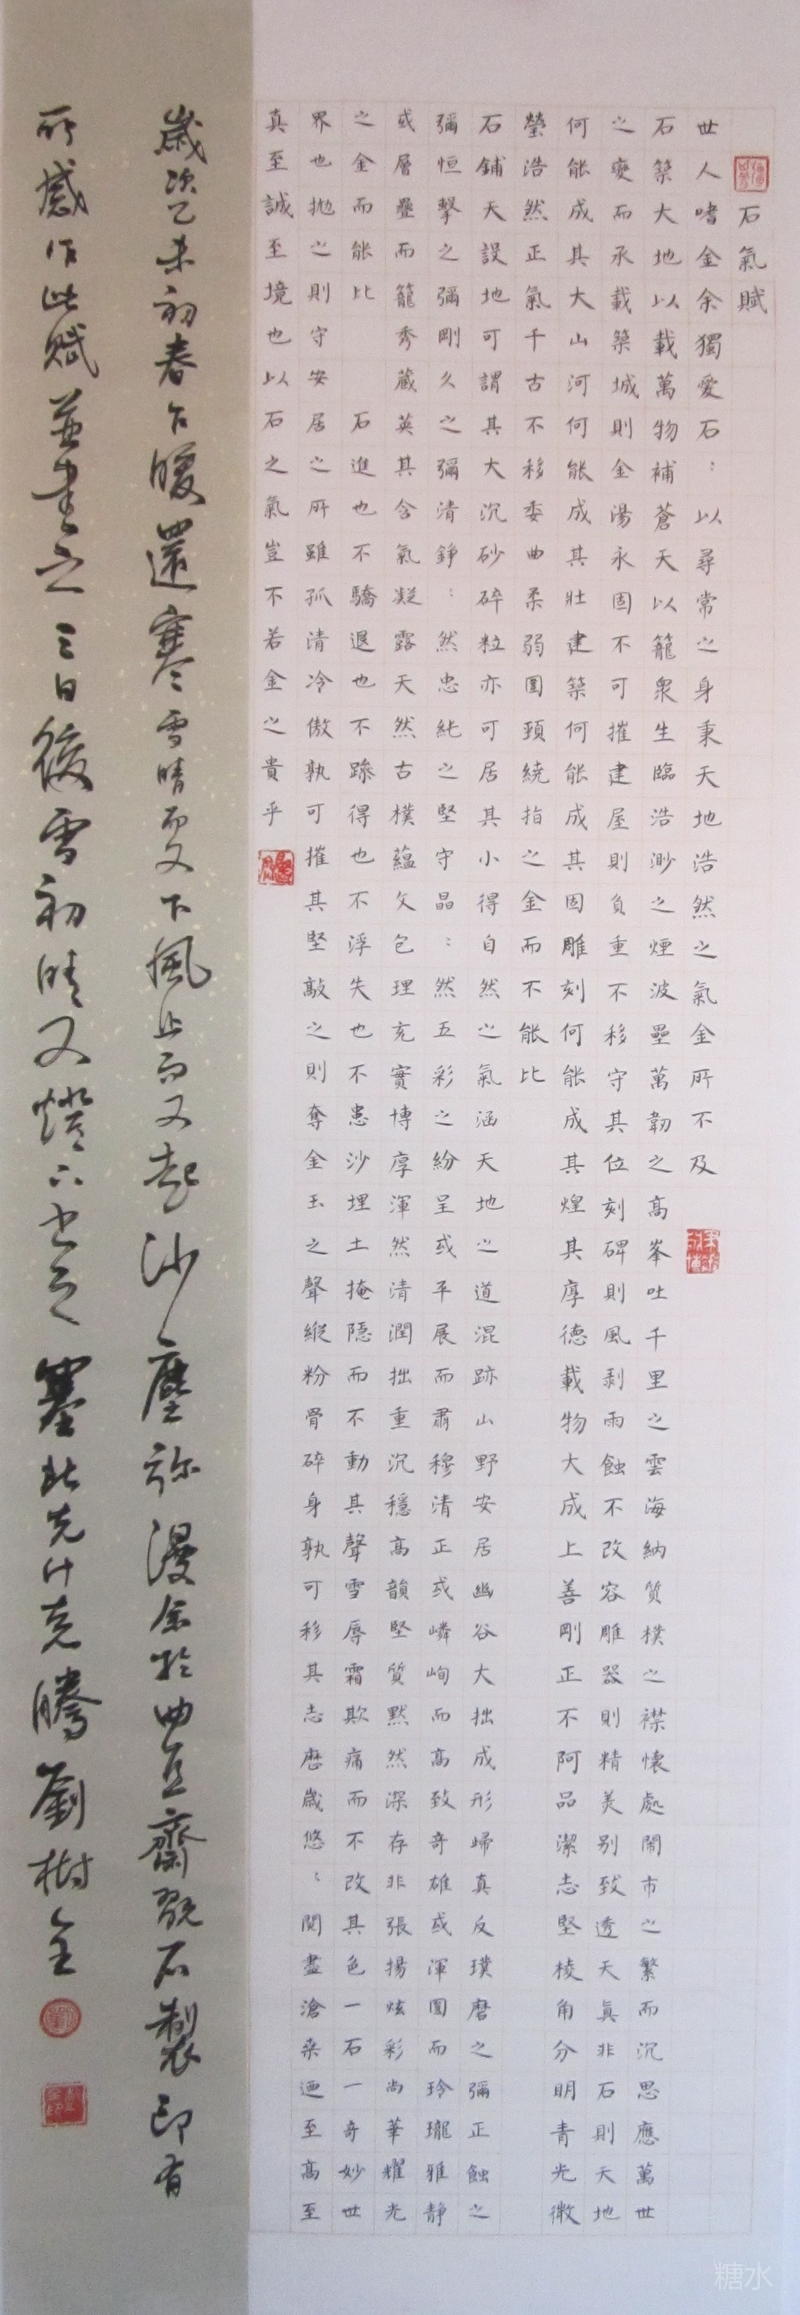 石氣賦
世人嗜金余獨愛石：以尋常之身秉天地浩然之氣金所不及
石築大地以載萬物補蒼天以籠眾生臨浩渺之煙波壘萬韌之高峯吐千里之雲海納質樸之襟懷處鬧市之繁而沉思應萬世
之變而承載築城則金湯永固不可摧建屋則負重不移守其位刻碑則風剥雨蝕不改容雕器則精美别致透天真非石則天地
何能成其大山河何能成其壯建築何能成其固雕刻何能成其煌其厚德載物大成上善剛正不阿品潔志堅棱角分明青光微
瑩浩然正氣千古不移委曲柔弱圓頸繞指之金而不能比
石鋪天設地可謂其大沉砂碎粒亦可居其小得自然之氣涵天地之道混跡山野安居幽谷大拙成形歸真反璞磨之彌正蝕之
彌恒擊之彌剛久之彌清錚：然忠純之堅守晶：然五彩之紛呈或平展而肅穆清正或嶙峋而高致奇雄或渾圓而玲瓏雅静
或層疊而籠秀藏英其含氣凝露天然古樸蘊文包理充實博厚渾然清潤拙重沉穩高韻堅質黙然深存非張揚炫彩尚華耀光
之金而能比
石進也不驕退也不躁得也不浮失也不患沙埋土掩隱而不動其聲雪辱霜欺痛而不改其色一石一奇妙世
界也抛之則守安居之所雖孤清冷傲孰可摧其堅敲之則奪金玉之聲縱粉骨碎身孰可移其志歷歲悠：閱盡滄桑迺至高至
真至誠至境也以石之氣豈不若金之貴乎
歲次乙未初春乍暖還寒雪晴而又下風止而又起沙塵弥漫余於曲直齋觀石製印有
所感作此賦並書之三日後雪初晴又燈下書之塞北克什克騰劉樹全
糖水